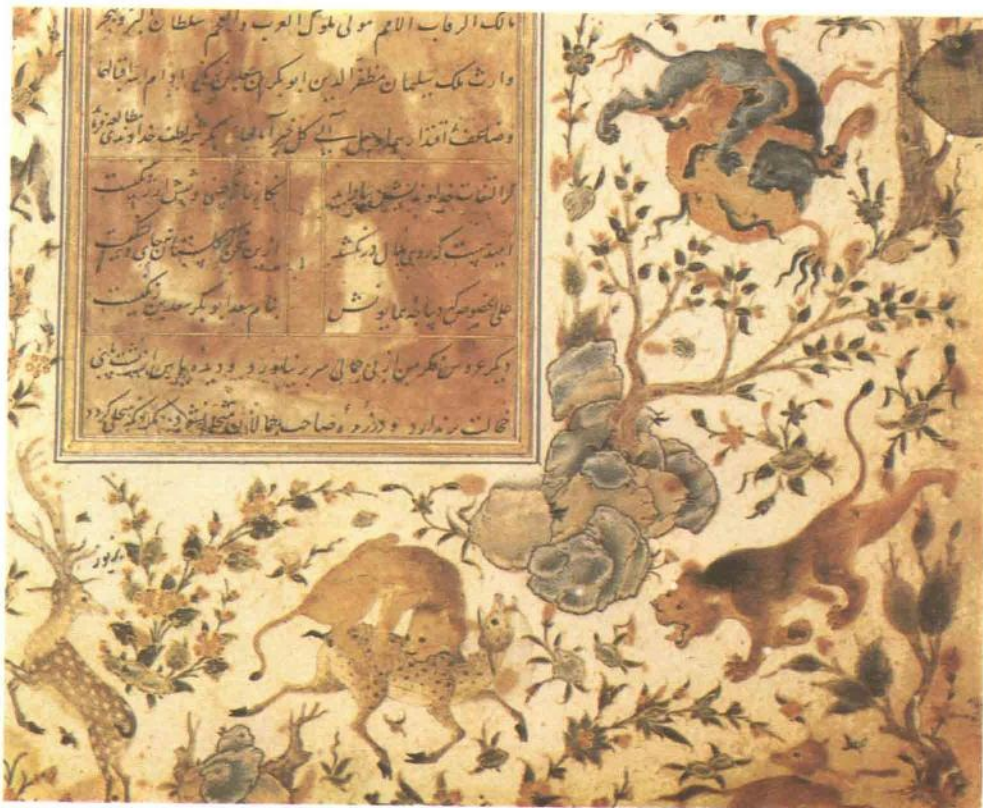 مالک الرقاب الامم مولی ملوک العرب و العجم سلطان البر و البحر
وارث ملک سلیمان مظفر الدین ابوبکر بن سعد بن زنگی ادام الله اقبالهما
و ضاعف اقتدارهما و جعل الی کل خیر مآلهما بکرشمه لطف خداوندی مطالعه
گر التفات خداوندیش بیاراید نگارخانه چینی و نقش ارژنگیست
امید هست که روی ملال در نکشد ازین سخن که گلستان نه جای دلتنگیست
علی الخصوص که دیباچه همایونش بنام سعد ابوبکر سعد بن زنگیست
دیگر عروس فکر من از بی جمالی سر بر نیاورد و دیده یاس از پشت پای
خجالت بر ندارد و در زمره صاحب جمالان متجلی نشود مگر آنگه که متحلی گردد
بزیور